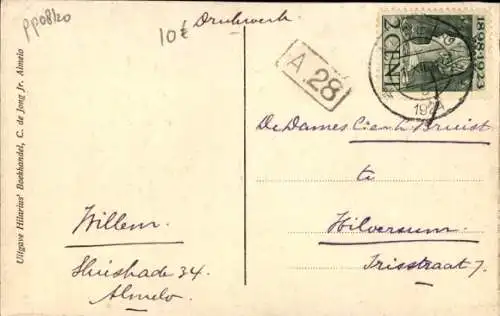 pp08120
10€
Drukwerk
1898-1923
2 CENT
1924
A. 28
De Dames C. en h. Bruist
te
Hilversum.
Irisstraat 7.
Willem.
34.
Almelo.
Uitgave Hilarius' Boekhandel, C. de Jong Jr. Almelo